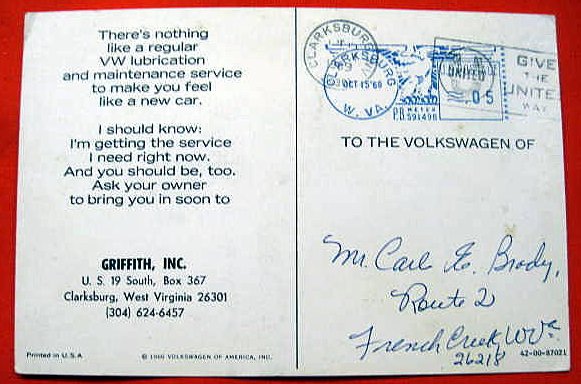 There's nothing
like a regular
VW lubrication
and maintenance service
to make you feel
like a new car.
I should know:
I'm getting the service
I need right now.
And you should be, too.
Ask your owner
to bring you in soon to
GRIFFITH, INC.
U. S. 19 South, Box 367
Clarksburg, West Virginia 26301
(304) 624-6457
Printed in U.S.A.
© 1966 VOLKSWAGEN OF AMERICA, INC.
CLARKSBURG
CLARKSBURG
OCT 15 '68
W. VA.
P.B. METER
591498
UNITED
.05
GIVE
THE
UNITED
WAY
TO THE VOLKSWAGEN OF
Mr. Carl E. Brody,
Route 2
French Creek, W Va
26218
42-00-87021